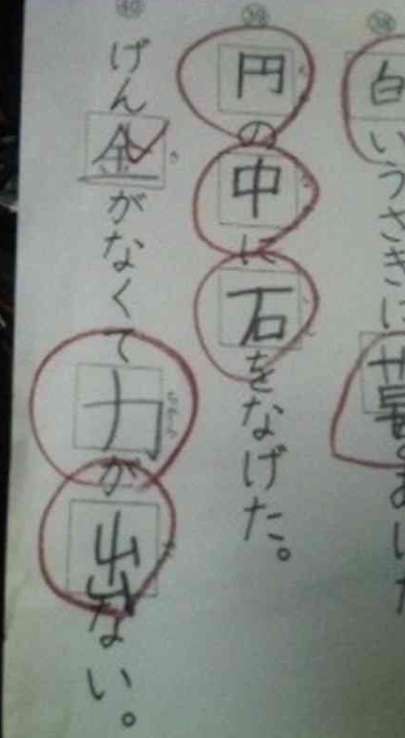 ㊳ 白いうさぎに
㊴ 円の中に石をなげた。
㊵ げん金がなくて力が出ない。